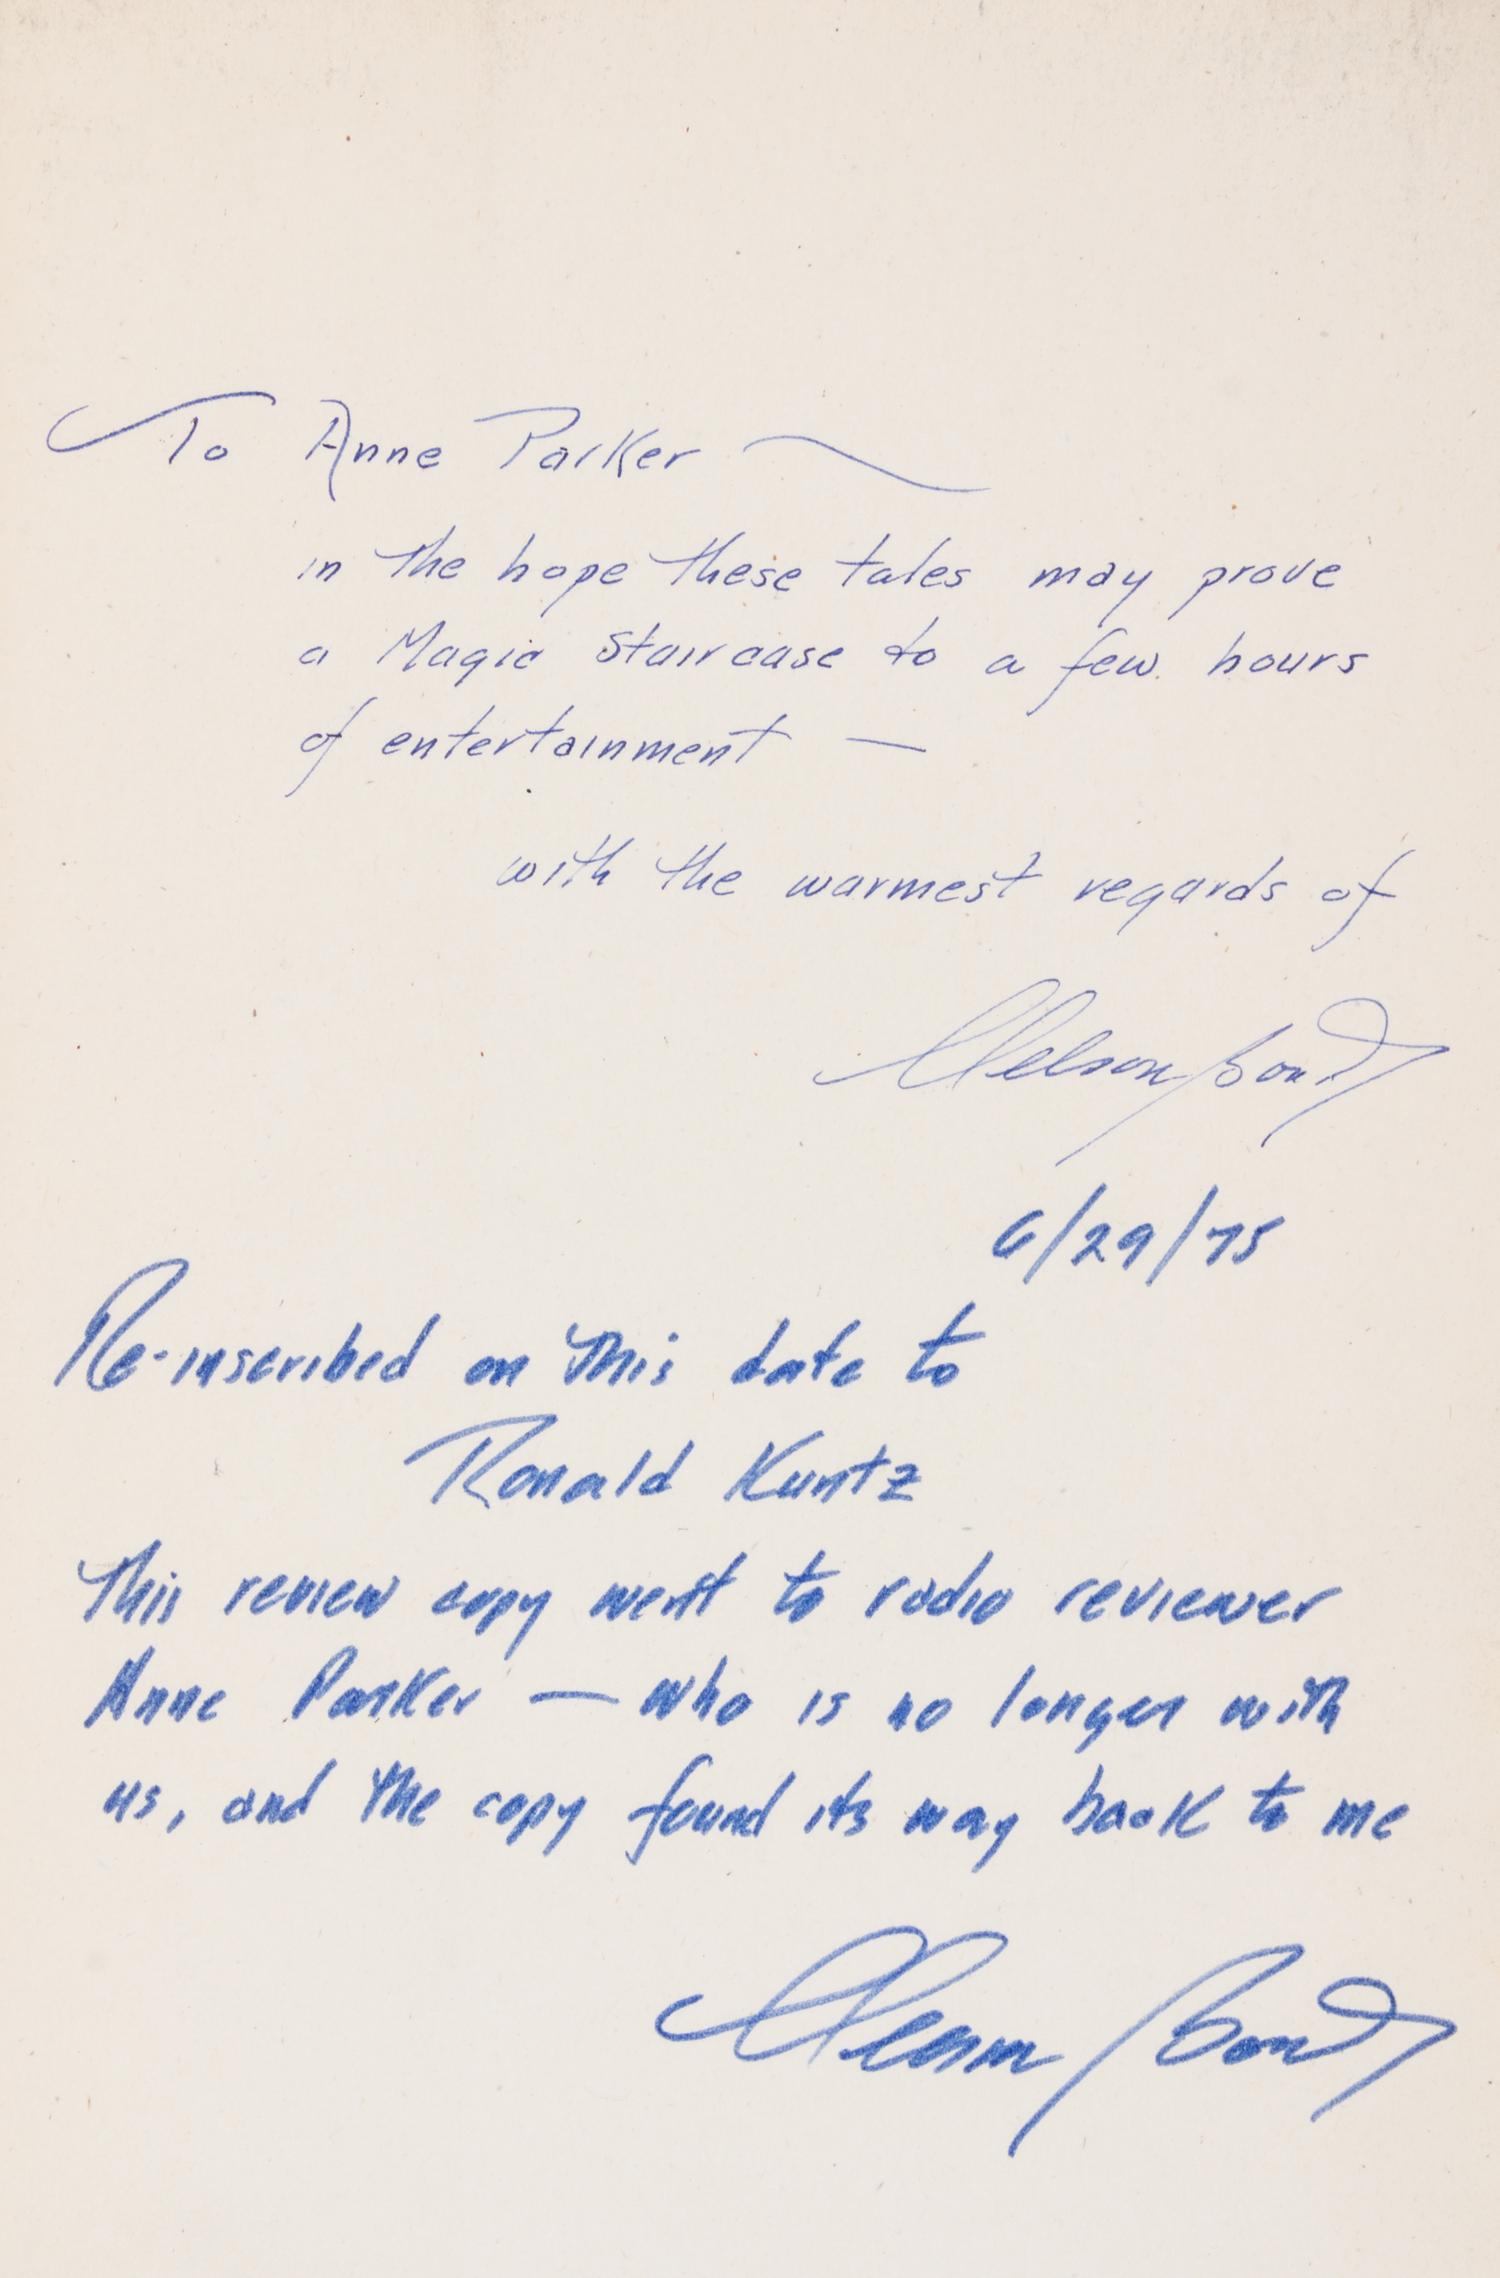 To Anne Parker
in the hope these tales may prove
a Magic Staircase to a few hours
of entertainment —
with the warmest regards of
Nelson Bond
6/29/75
Re-inscribed on this date to
Ronald Kuntz
This review copy went to radio reviewer
Anne Parker — who is no longer with
us, and the copy found its way back to me
Nelson Bond